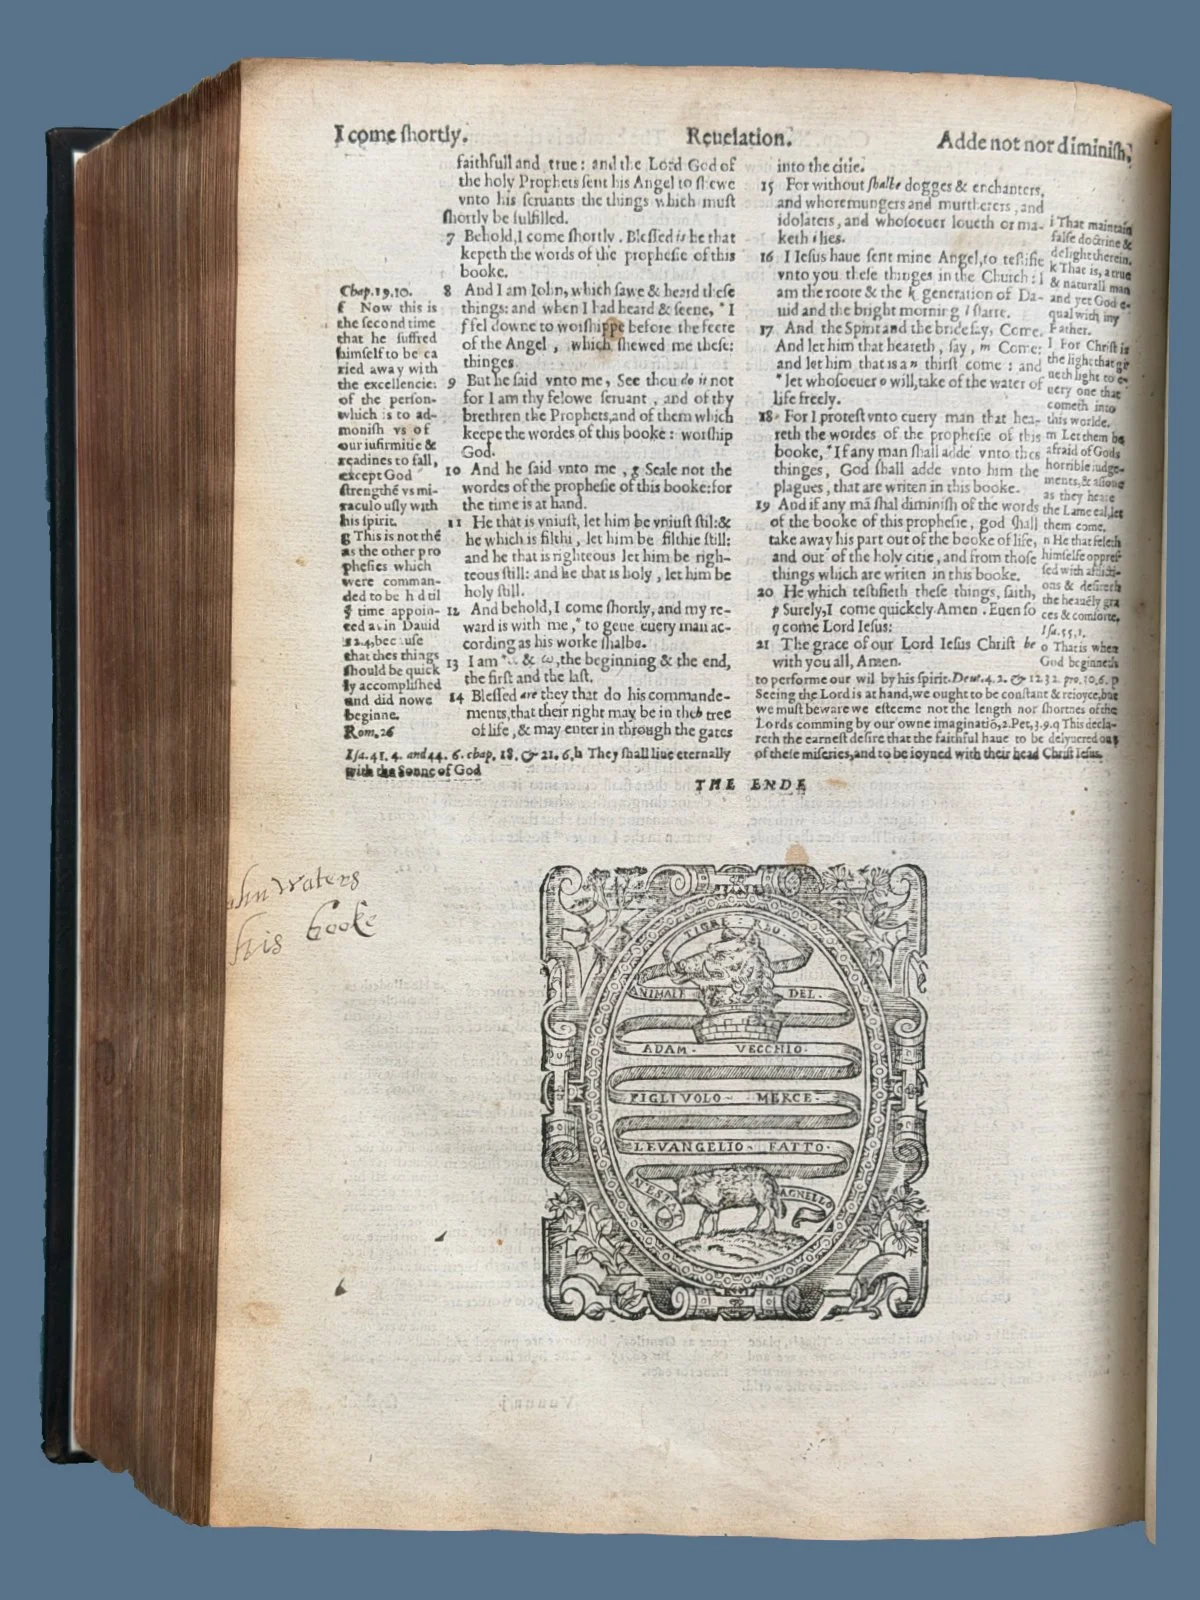 I come ſhortly.
Reuelation.
Adde not nor diminiſh.
faithfull and true: and the Lord God of
the holy Prophets ſent his Angel to ſhewe
vnto his ſeruants the things which muſt
ſhortly be fulfilled.
7 Behold, I come ſhortly. Bleſſed is he that
kepeth the words of the propheſie of this
booke.
8 And I am Iohn, which ſawe & heard theſe
things: and when I had heard & ſeene, * I
f fel downe to worſhippe before the feete
of the Angel, which ſhewed me theſe
thinges
9 But he ſaid vnto me, See thou do it not
for I am thy felowe ſeruant, and of thy
brethren the Prophets, and of them which
keepe the wordes of this booke: worſhip
God.
10 And he ſaid vnto me, g Seale not the
wordes of the propheſie of this booke: for
the time is at hand.
11 He that is vniuſt, let him be vniuſt ſtil: &
he which is filthi, let him be filthie ſtill:
and he that is righteous let him be righ-
teous ſtill: and he that is holy, let him be
holy ſtill.
12 And behold, I come ſhortly, and my re-
ward is with me, * to geue euery man ac-
cording as his worke ſhalbe.
13 I am * α & ω, the beginning & the end,
the firſt and the laſt.
14 Bleſſed are they that do his commande-
ments, that their right may be in the h tree
of life, & may enter in through the gates
Chap. 19. 10.
f Now this is
the ſecond time
that he ſuffred
himſelf to be ca
ried away with
the excellencie
of the perſon
which is to ad-
moniſh vs of
our infirmitie &
readines to fall,
except God
ſtrengthẽ vs mi-
raculouſly with
his ſpirit.
g This is not thẽ
as the other pro
pheſies which
were comman-
ded to be hid til
ỹ time appoin-
ted as in Dauid
12.4, becauſe
that thes things
ſhould be quick
ly accompliſhed
and did nowe
beginne.
Rom. 26
Iſa. 41. 4. and 44. 6. chap. 18. & 21. 6, h They ſhall liue eternally
with the Sonne of God
into the citie.
15 For without ſhalbe dogges & enchanters,
and whoremungers and murtherers, and
idolaters, and whoſoeuer loueth or ma-
keth i lies.
16 I Ieſus haue ſent mine Angel, to teſtifie
vnto you theſe thinges in the Church: I
am the roote & the k generation of Da-
uid and the bright morning l ſtarre.
17 And the Spirit and the bride ſay, Come.
And let him that heareth, ſay, m Come:
and let him that is a n thirſt come: and
* let whoſoeuer o will, take of the water of
life freely.
18 For I proteſt vnto euery man that hea-
reth the wordes of the propheſie of this
booke, * If any man ſhall adde vnto thes
thinges, God ſhall adde vnto him the
plagues, that are writen in this booke.
19 And if any mã ſhal diminiſh of the words
of the booke of this propheſie, god ſhall
take away his part out of the booke of life,
and out of the holy citie, and from thoſe
things which are writen in this booke.
20 He which teſtifieth theſe things, ſaith,
p Surely, I come quickely. Amen. Euen ſo
q come Lord Ieſus:
21 The grace of our Lord Ieſus Chriſt be
with you all, Amen.
i That maintain
falſe doctrine &
delight therein.
k That is, a true
& naturall man
and yet God e-
qual with my
Father.
l For Chriſt is
the light that gi
ueth light to e-
uery one that
cometh into
this worlde.
m Let them be
afraid of Gods
horrible iudge-
ments, &
as they heare
the Lame cal, let
them come.
n He that feleth
himſelfe oppreſ-
ſed with afflicti-
ons & deſireth
the heauẽly gra
ces & comforte.
Iſa. 55, 1.
o That is when
God beginneth
to performe our wil by his ſpirit. Deut. 4. 2. & 12. 32. pro. 10. 6. p
Seeing the Lord is at hand, we ought to be conſtant & reioyce, but
we muſt beware we eſteeme not the length nor ſhortnes of the
Lords comming by our owne imaginatiõ, 2. Pet, 3. 9. q This decla-
reth the earneſt deſire that the faithful haue to be deliuered out
of theſe miſeries, and to be ioyned with their head Chriſt Ieſus.
THE ENDE
ohn Waters
his booke
TIGRE · REO ·
ANIMALE DEL ·
ADAM · VECCHIO ·
FIGLIVOLO · MERCE ·
LEVANGELIO · FATTO ·
N'ESTAT AGNELLO